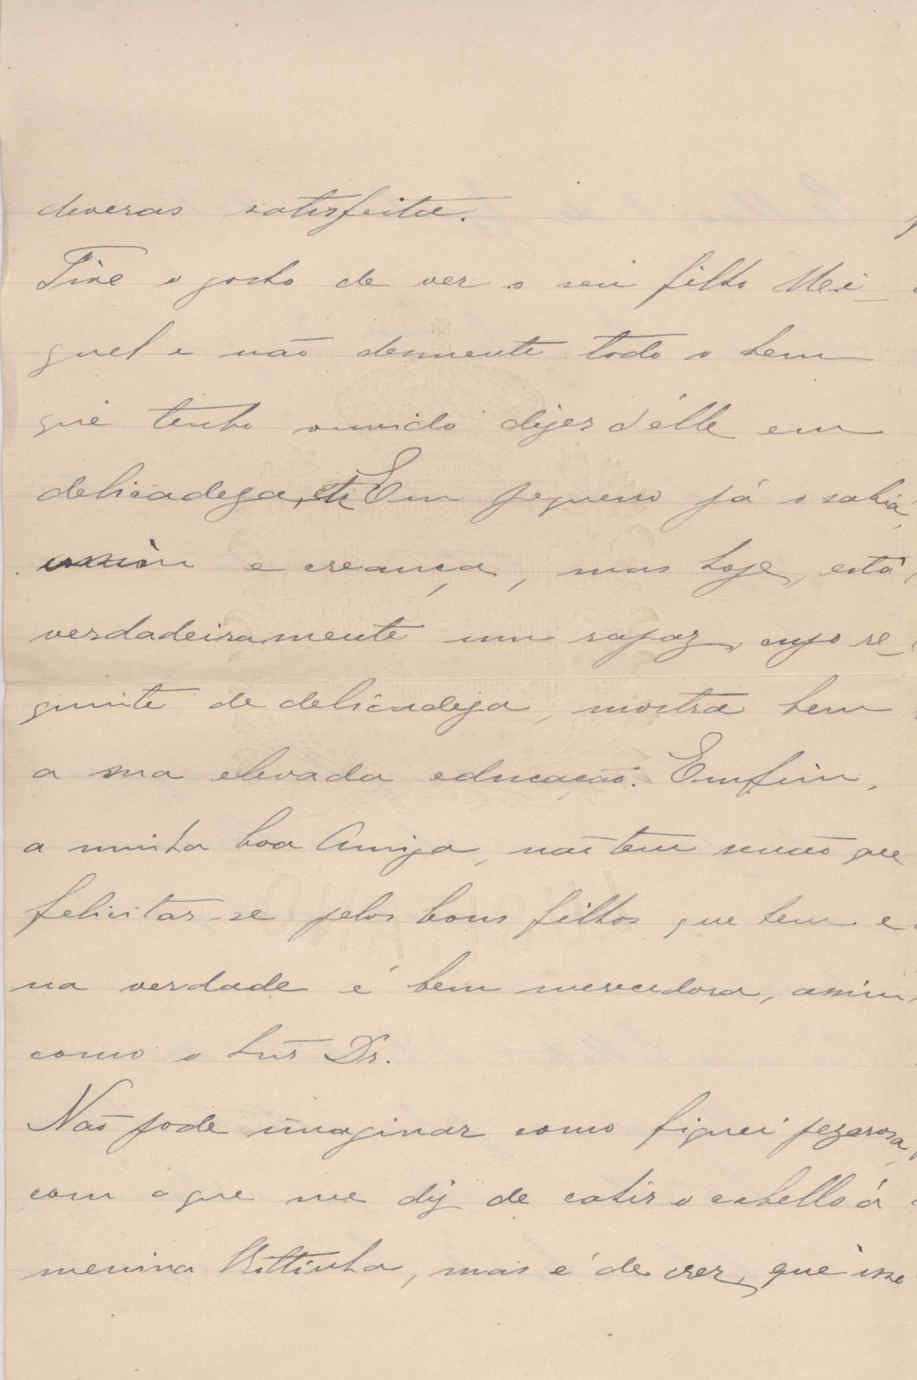 deveras satisfeita.
Tive o gosto de ver o seu filho Mi-
guel e não desmente todo o bem
que tenho ouvido dizer d'elle em
delicadeza, Em pequeno já o sabia,
e creança, mas hoje, está
verdadeiramente um rapaz, cujo re-
quinte de delicadeza, mostra bem
a sua elevada educação. Emfim,
a minha boa Amiga, não tem senão que
felicitar-se pelos bons filhos que tem e
na verdade é bem merecedora, assim
como o Snr Dr.
Não pode imaginar como fiquei pezarosa,
com o que me diz de cahir o cabello á
menina Rittinha, mas é de crer, que isso